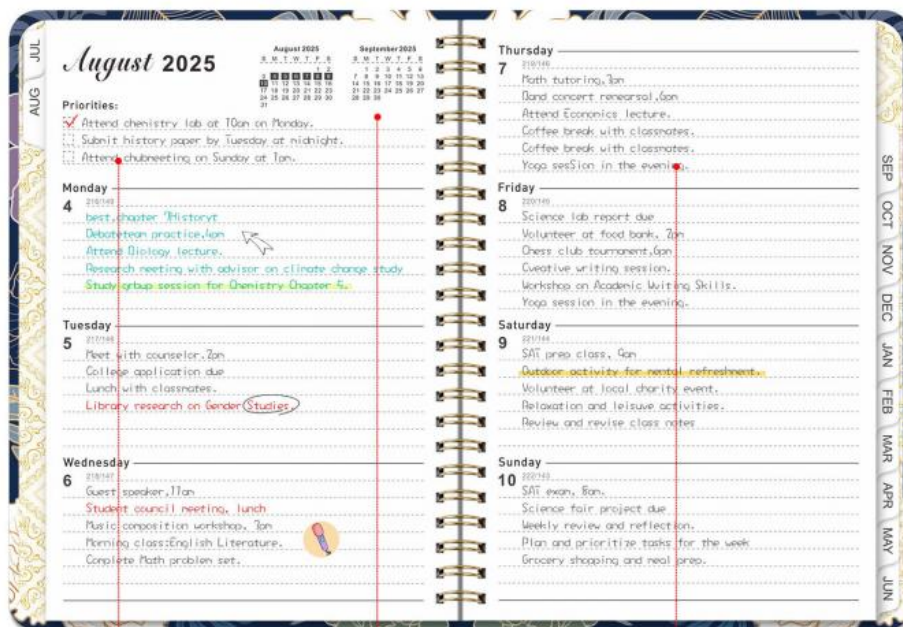 JUL
AUG
August 2025
August 2025
S M T W T F S
1 2
3 4 5 6 7 8 9
10 11 12 13 14 15 16
17 18 19 20 21 22 23
24 25 26 27 28 29 30
31
September 2025
S M T W T F S
1 2 3 4 5 6
7 8 9 10 11 12 13
14 15 16 17 18 19 20
21 22 23 24 25 26 27
28 29 30
Priorities:
Attend chemistry lab at 10am on Monday.
Submit history paper by Tuesday at midnight.
Attend chubneeting on Sunday at 1pm.
Monday
4
216/149
best,chapter 7Historyt
Debateteam practice,4pm
Attend Biology lecture.
Research meeting with advisor on climate change study
Study grbup session for Chemistry Chapter 5.
Tuesday
5
217/148
Meet with counselor,2pm
College application due
Lunch with classmates.
Library research on Gender Studies.
Wednesday
6
218/147
Guest speaker,11am
Student council meeting, lunch
Music composition workshop, 3pm
Morning class:English Literature.
Complete Math problem set.
Thursday
7
219/146
Math tutoring,3pm
Band concert rehearsal,6pm
Attend Economics lecture.
Coffee break with classmates.
Coffee break with classmates.
Yoga sesSion in the evening.
Friday
8
220/145
Science lab report due
Volunteer at food bank, 2pm
Chess club tournament,6pm
Cveative writing session.
Workshop on Academic Wviting Skills.
Yoga session in the evening.
Saturday
9
221/144
SAT prep class, 9am
Outdoor activity for mental refreshment.
Volunteer at local charity event.
Relaxation and leisuve activities.
Review and revise class notes
Sunday
10
222/143
SAT exam, 8am.
Science fair project due
Weekly review and reflection.
Plan and prioritize tasks for the week
Grocery shopping and meal prep.
SEP
OCT
NOV
DEC
JAN
FEB
MAR
APR
MAY
JUN